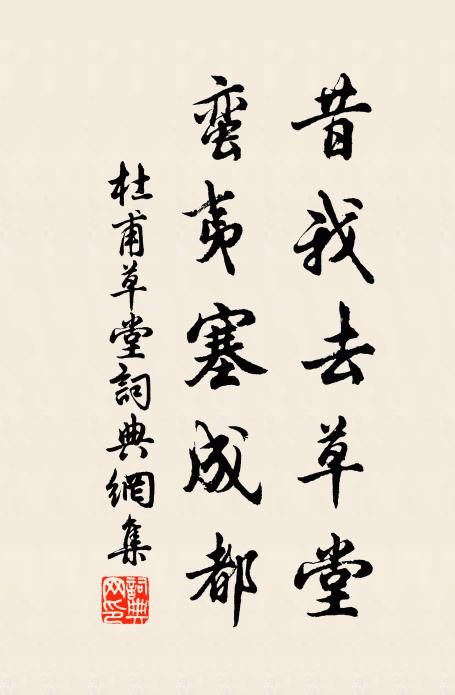 昔我去草堂
蛮夷塞成都
杜甫草堂詞典網集
詞典网印